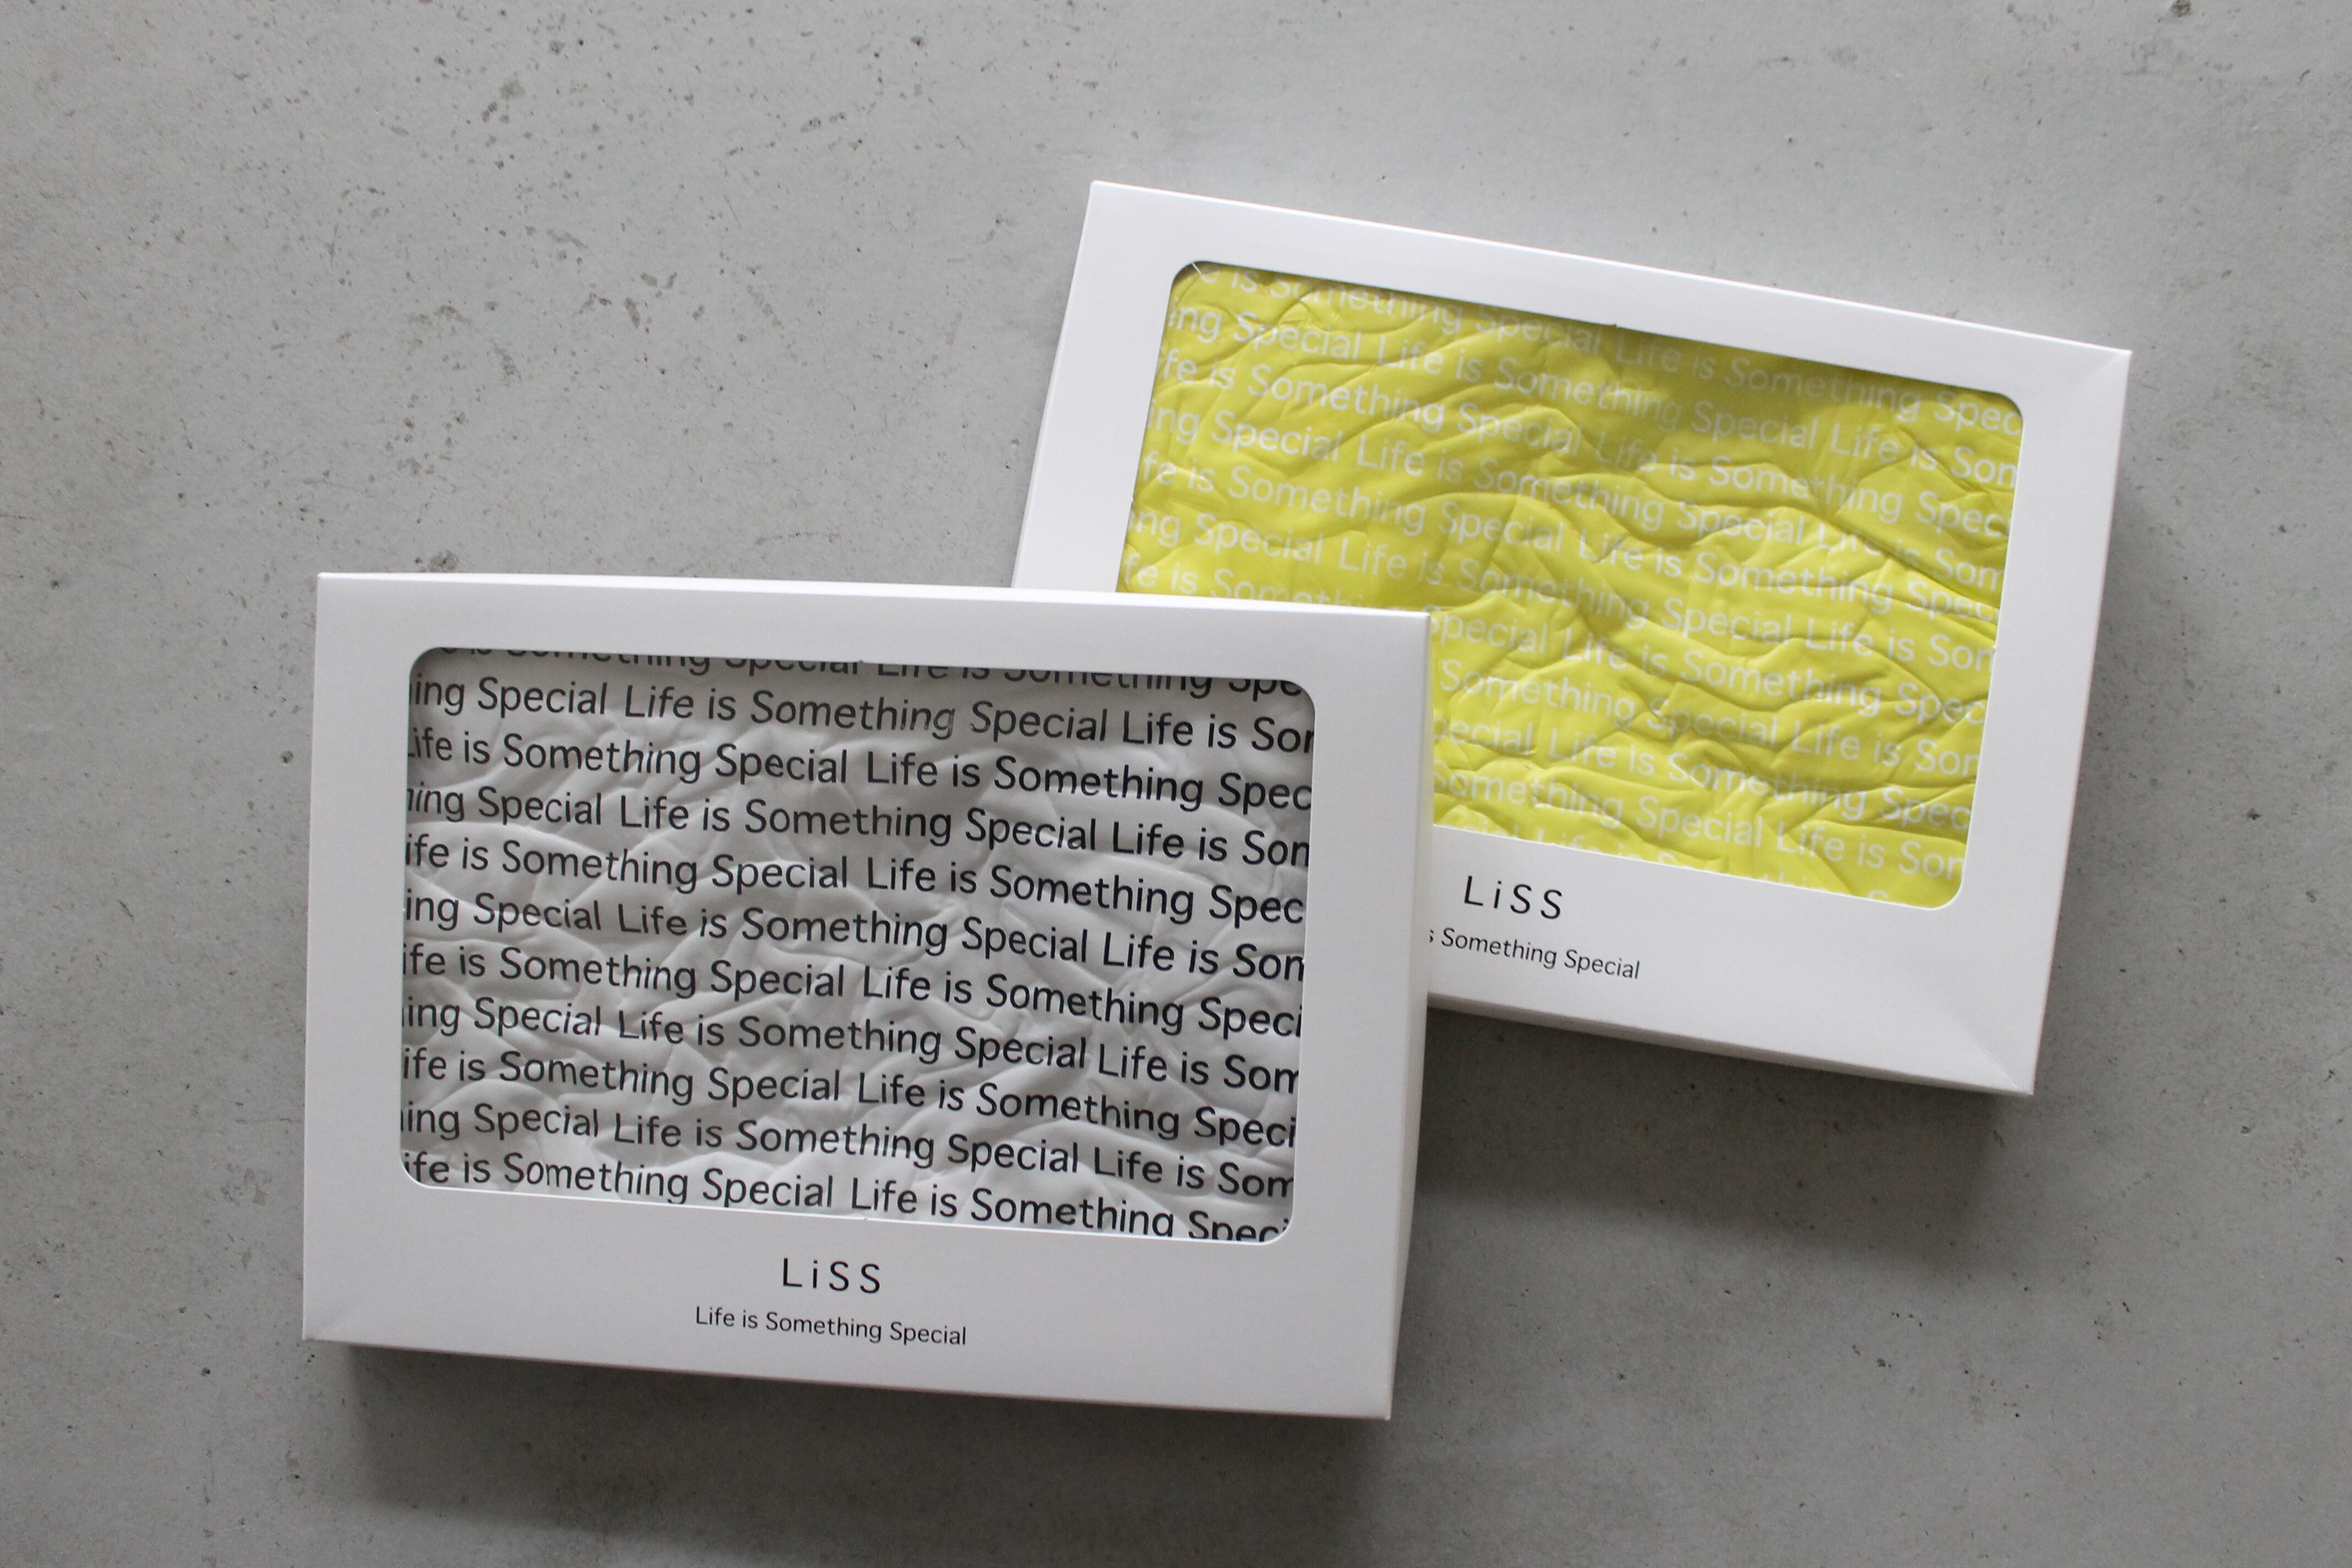 e is Something Special Life is Something Spec
ing Special Life is Something Special Life is Son
fe is Something Special Life is Something Spec
ing Special Life is Something Special Life is Son
fe is Something Special Life is Something Spec
ng Special Life is Something Special Life is Son
fe is Something Special Life is Something Spec
Special Life is Something Special Life is Son
Something Special Life is Something Spec
ecial Life is Something Special Life is Son
LiSS
s Something Special
is Something Special Life is Something Spe
ing Special Life is Something Special Life is Son
Life is Something Special Life is Something Spec
hing Special Life is Something Special Life is Son
ife is Something Special Life is Something Spec
ing Special Life is Something Special Life is Son
ife is Something Special Life is Something Speci
ing Special Life is Something Special Life is Som
ife is Something Special Life is Something Speci
ing Special Life is Something Special Life is Som
ife is Something Special Life is Something Speci
LiSS
Life is Something Special